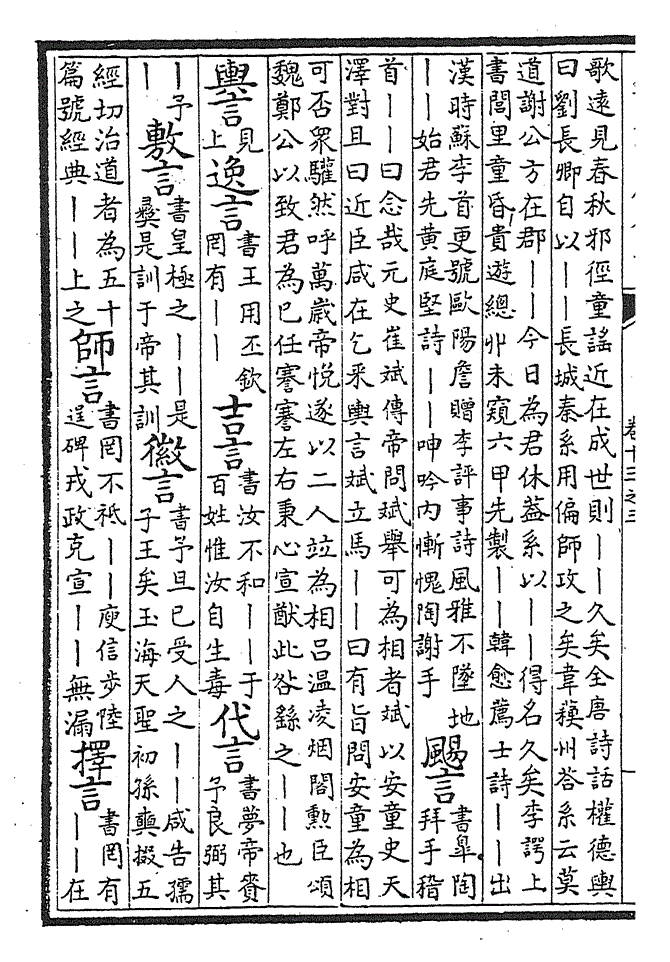 卷十三之三
歌遠見春秋邪徑童謠近在成世則——久矣全唐詩話權德輿
曰劉長卿自以——長城秦系用偏師攻之矣韋蘓州答系云莫
道謝公方在郡——今日為君休葢系以——得名久矣李諤上
書閭里童昏貴遊總丱未窺六甲先製——韓愈薦士詩——出
漢時蘇李首更號歐陽詹贈李評事詩風雅不墜地
——始君先黄庭堅詩——呻吟内慚愧陶謝手
颺言
書臯陶
拜手稽
首——曰念哉元史崔斌傳帝問斌舉可為相者斌以安童史天
澤對且曰近臣咸在乞釆輿言斌立馬——曰有旨問安童為相
可否衆驩然呼萬歲帝悦遂以二人竝為相吕温凌烟閣勲臣頌
魏鄭公以致君為已任謇謇左右秉心宣猷此咎繇之——也
輿言
見
上
逸言
書王用丕欽
罔有——
吉言
書汝不和——于
百姓惟汝自生毒
代言
書夢帝賚
予良弼其
——予
——
敷言
書皇極之——是
彝是訓于帝其訓
徽言
書予旦已受人之——咸告孺
子王矣玉海天聖初孫奭掇五
經切治道者為五十
篇號經典——上之
師言
書罔不祗——庾信步陸
逞碑戎政克宣——無漏
擇言
書罔有
——在